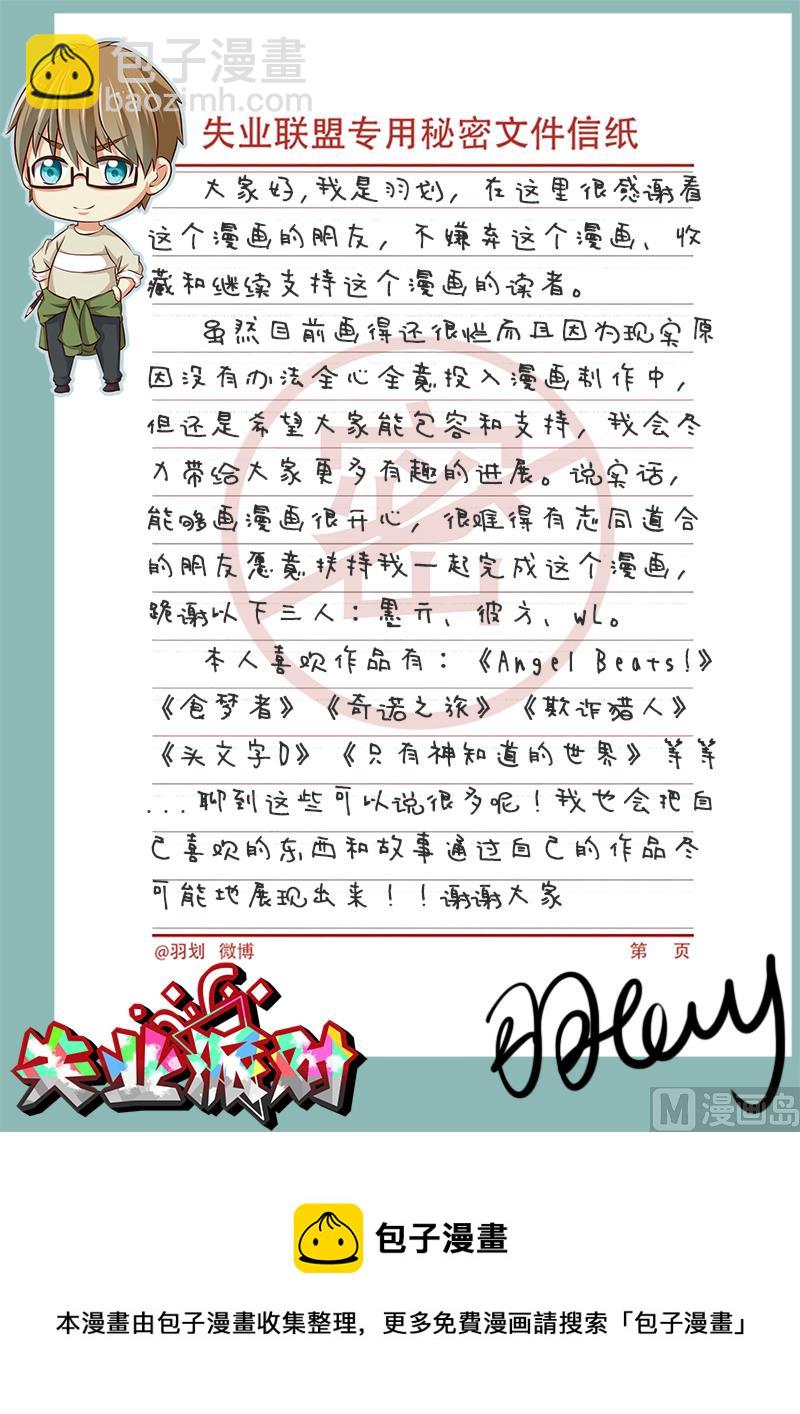 包子漫畫
baozimh.com
失业联盟专用秘密文件信纸
大家好,我是羽划，在这里很感谢看
这个漫画的朋友，不嫌弃这个漫画、收
藏和继续支持这个漫画的读者。
虽然目前画得还很烂而且因为现实原
因没有办法全心全意投入漫画制作中，
但还是希望大家能包容和支持，我会尽
力带给大家更多有趣的进展。说实话，
能够画漫画很开心，很难得有志同道合
的朋友愿意扶持我一起完成这个漫画，
跪谢以下三人：墨亓、彼方、WL。
本人喜欢作品有：《Angel Beats!》
《食梦者》《奇诺之旅》《欺诈猎人》
《头文字D》《只有神知道的世界》等等
...聊到这些可以说很多呢！我也会把自
己喜欢的东西和故事通过自己的作品尽
可能地展现出来！！谢谢大家
密
@羽划 微博
第 页
失业派对
M 漫画岛
包子漫畫
本漫畫由包子漫畫收集整理，更多免費漫画請搜索「包子漫畫」